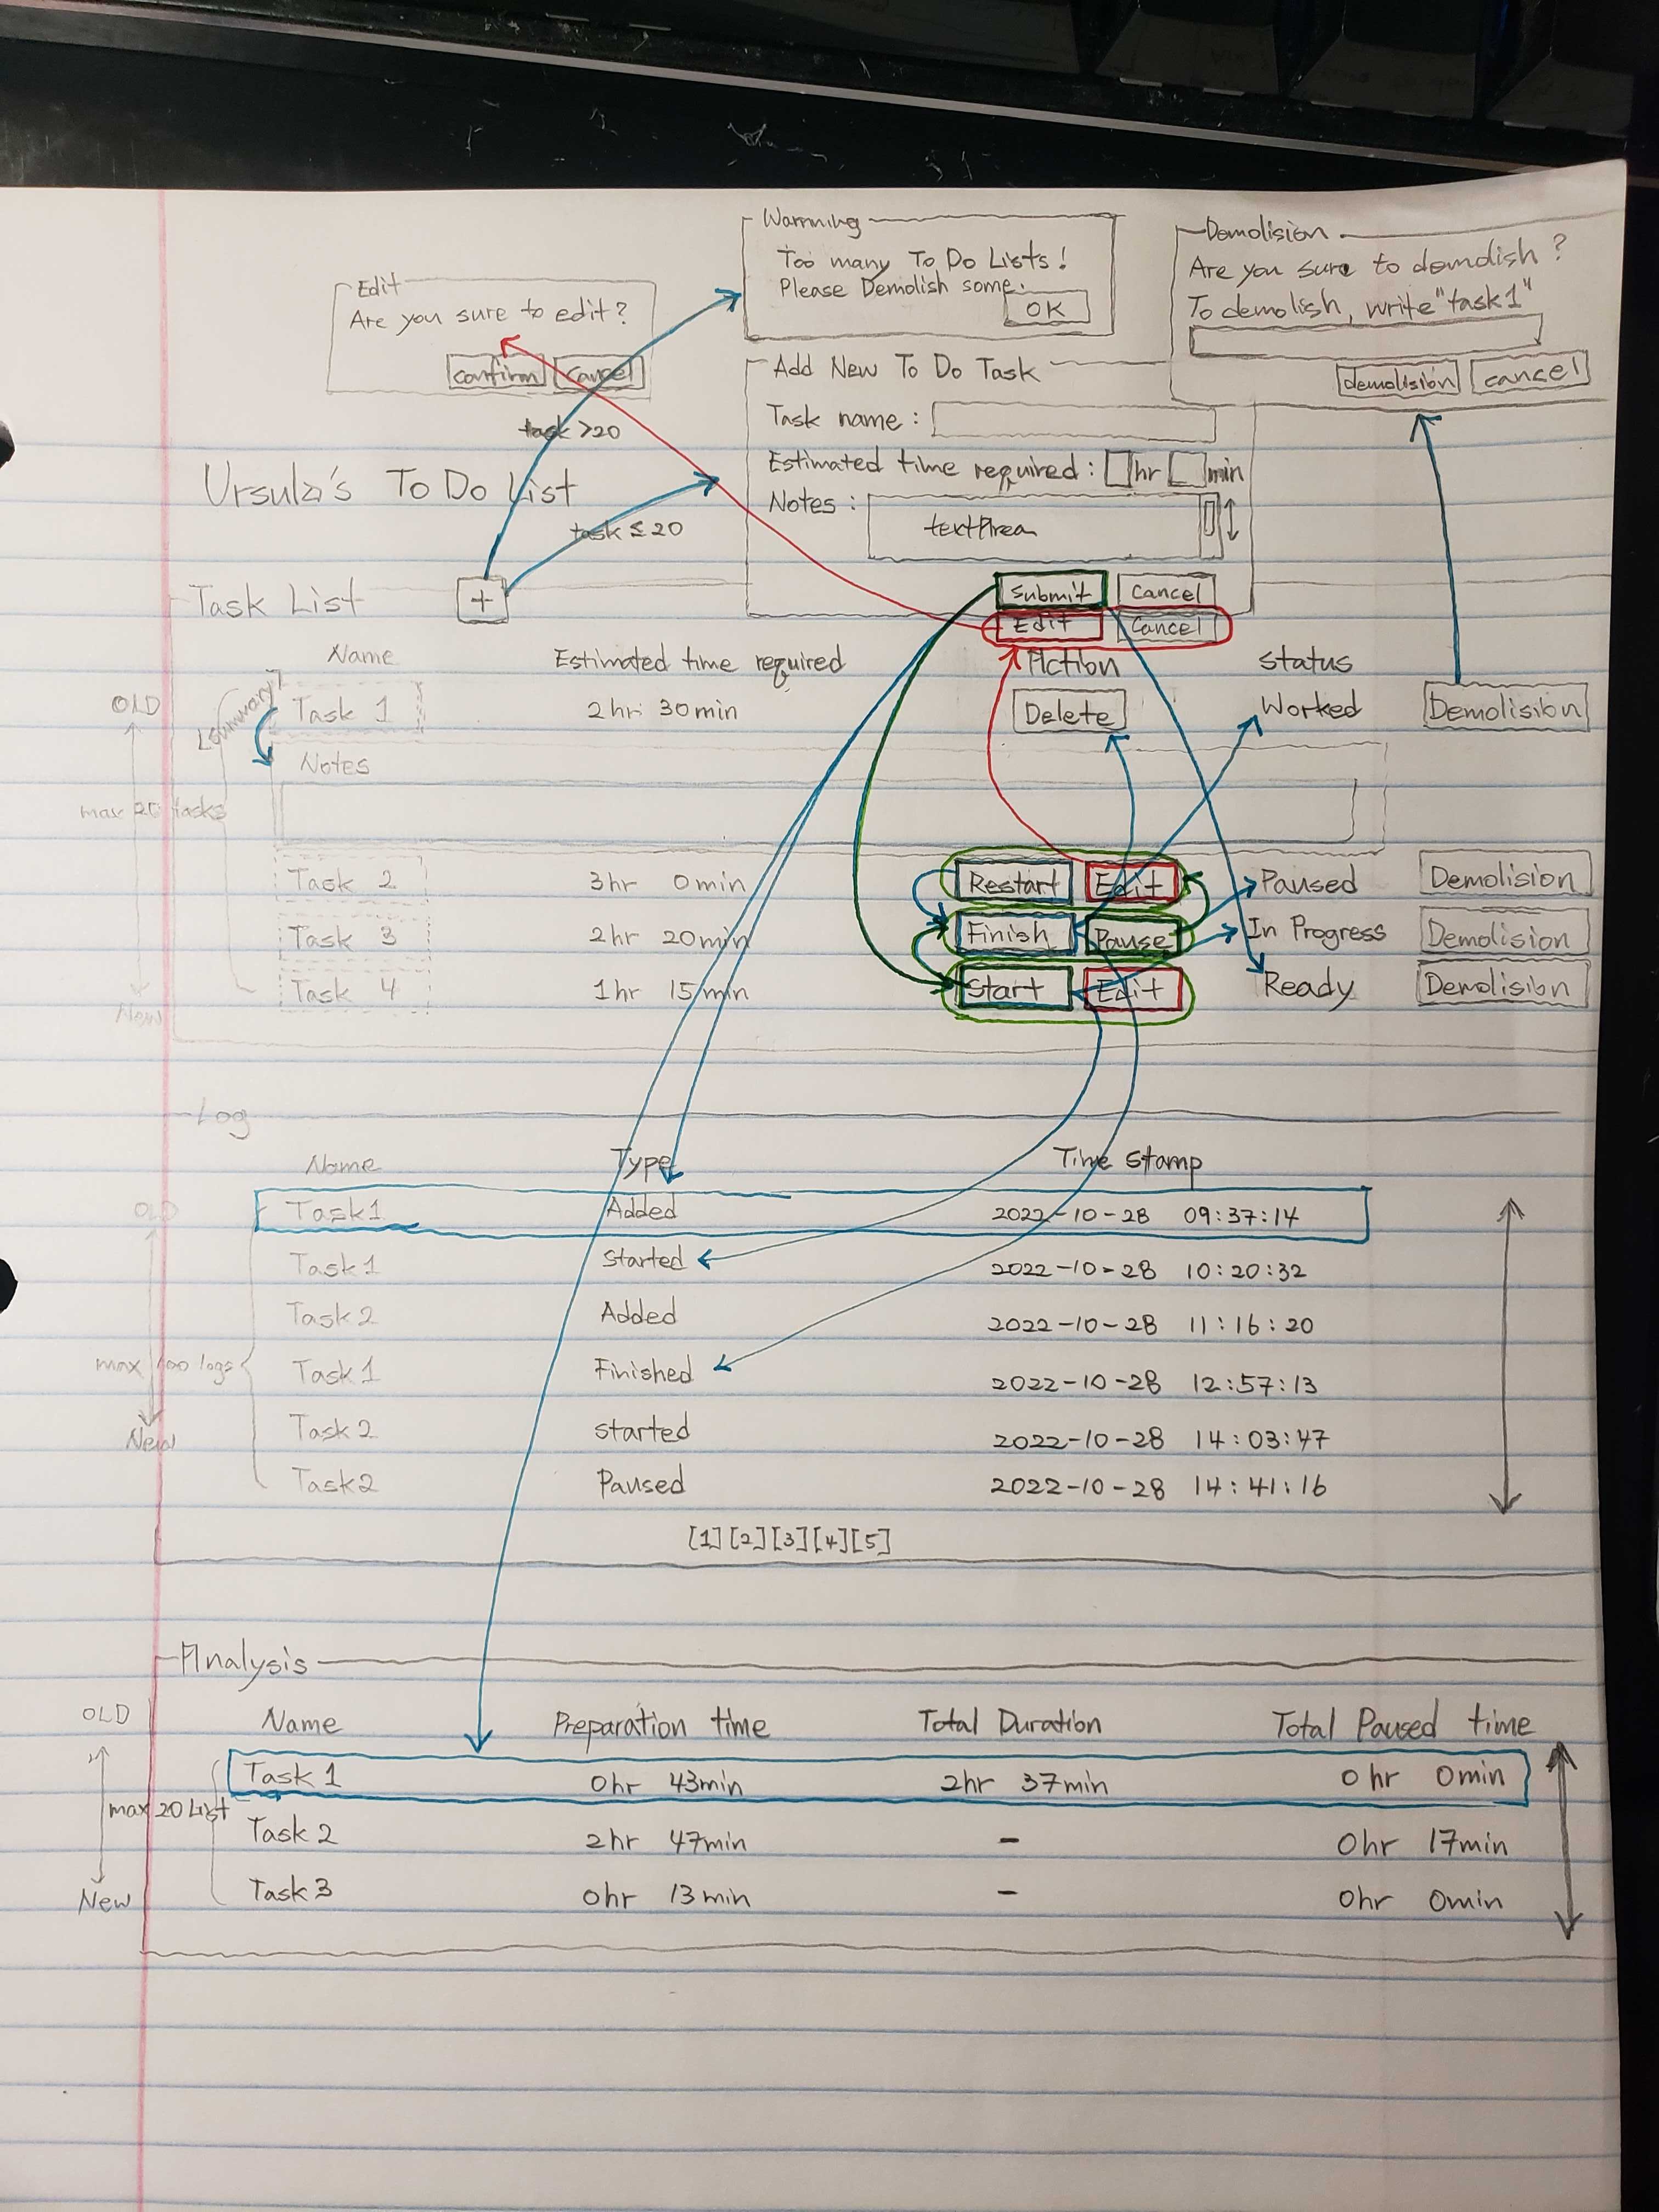 Warnning
Too many To Do Lists!
Please Demolish some.
OK
Demolision
Are you sure to demolish?
To demolish, write "task1"
demolision cancel
Edit
Are you sure to edit?
confirm cancel
Add New To Do Task
Task name :
Estimated time required : hr min
Notes : textArea
Submit Cancel
Edit Cancel
task >20
task ≤ 20
Ursula's To Do List
Task List +
Name Estimated time required Action Status
OLD
<summary>
Task 1 2 hr 30 min Delete Worked Demolision
Notes
max 20 tasks
Task 2 3 hr 0 min Restart Edit Paused Demolision
Task 3 2 hr 20 min Finish Pause In Progress Demolision
Task 4 1 hr 15 min Start Edit Ready Demolision
New
Log
Name Type Time Stamp
OLD
Task 1 Added 2022-10-28 09:37:14
Task 1 Started 2022-10-28 10:20:32
Task 2 Added 2022-10-28 11:16:20
max 100 logs
Task 1 Finished 2022-10-28 12:57:13
Task 2 started 2022-10-28 14:03:47
New
Task 2 Paused 2022-10-28 14:41:16
[1][2][3][4][5]
Analysis
OLD
Name Preparation time Total Duration Total Paused time
Task 1 0 hr 43 min 2 hr 37 min 0 hr 0 min
max 20 List
Task 2 2 hr 47 min - 0 hr 17 min
Task 3 0 hr 13 min - 0 hr 0 min
New